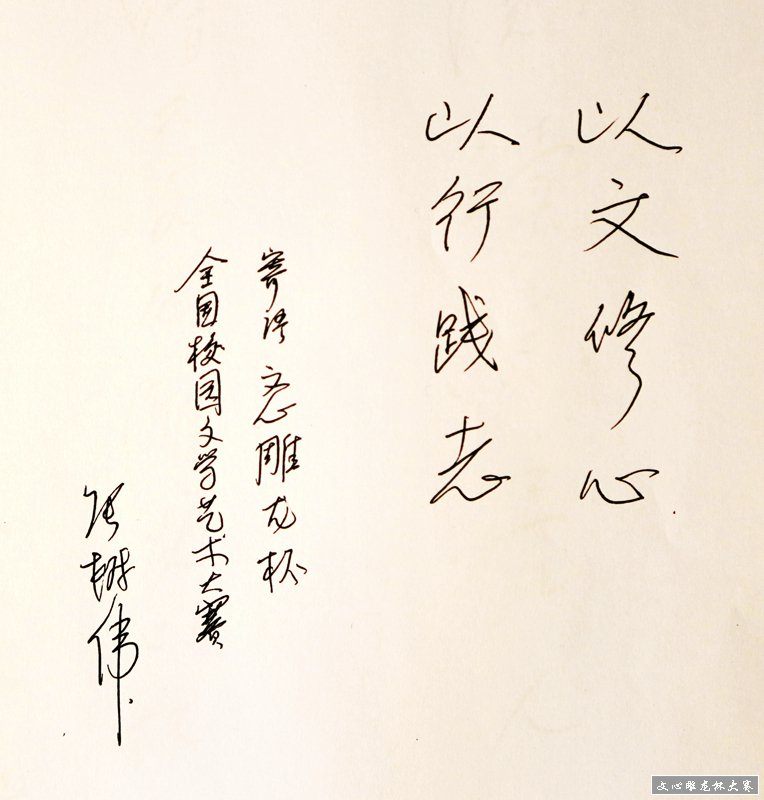 以文修心
以行践志
寄语文心雕龙杯
全国校园文学艺术大赛
张树伟
文心雕龙杯大赛